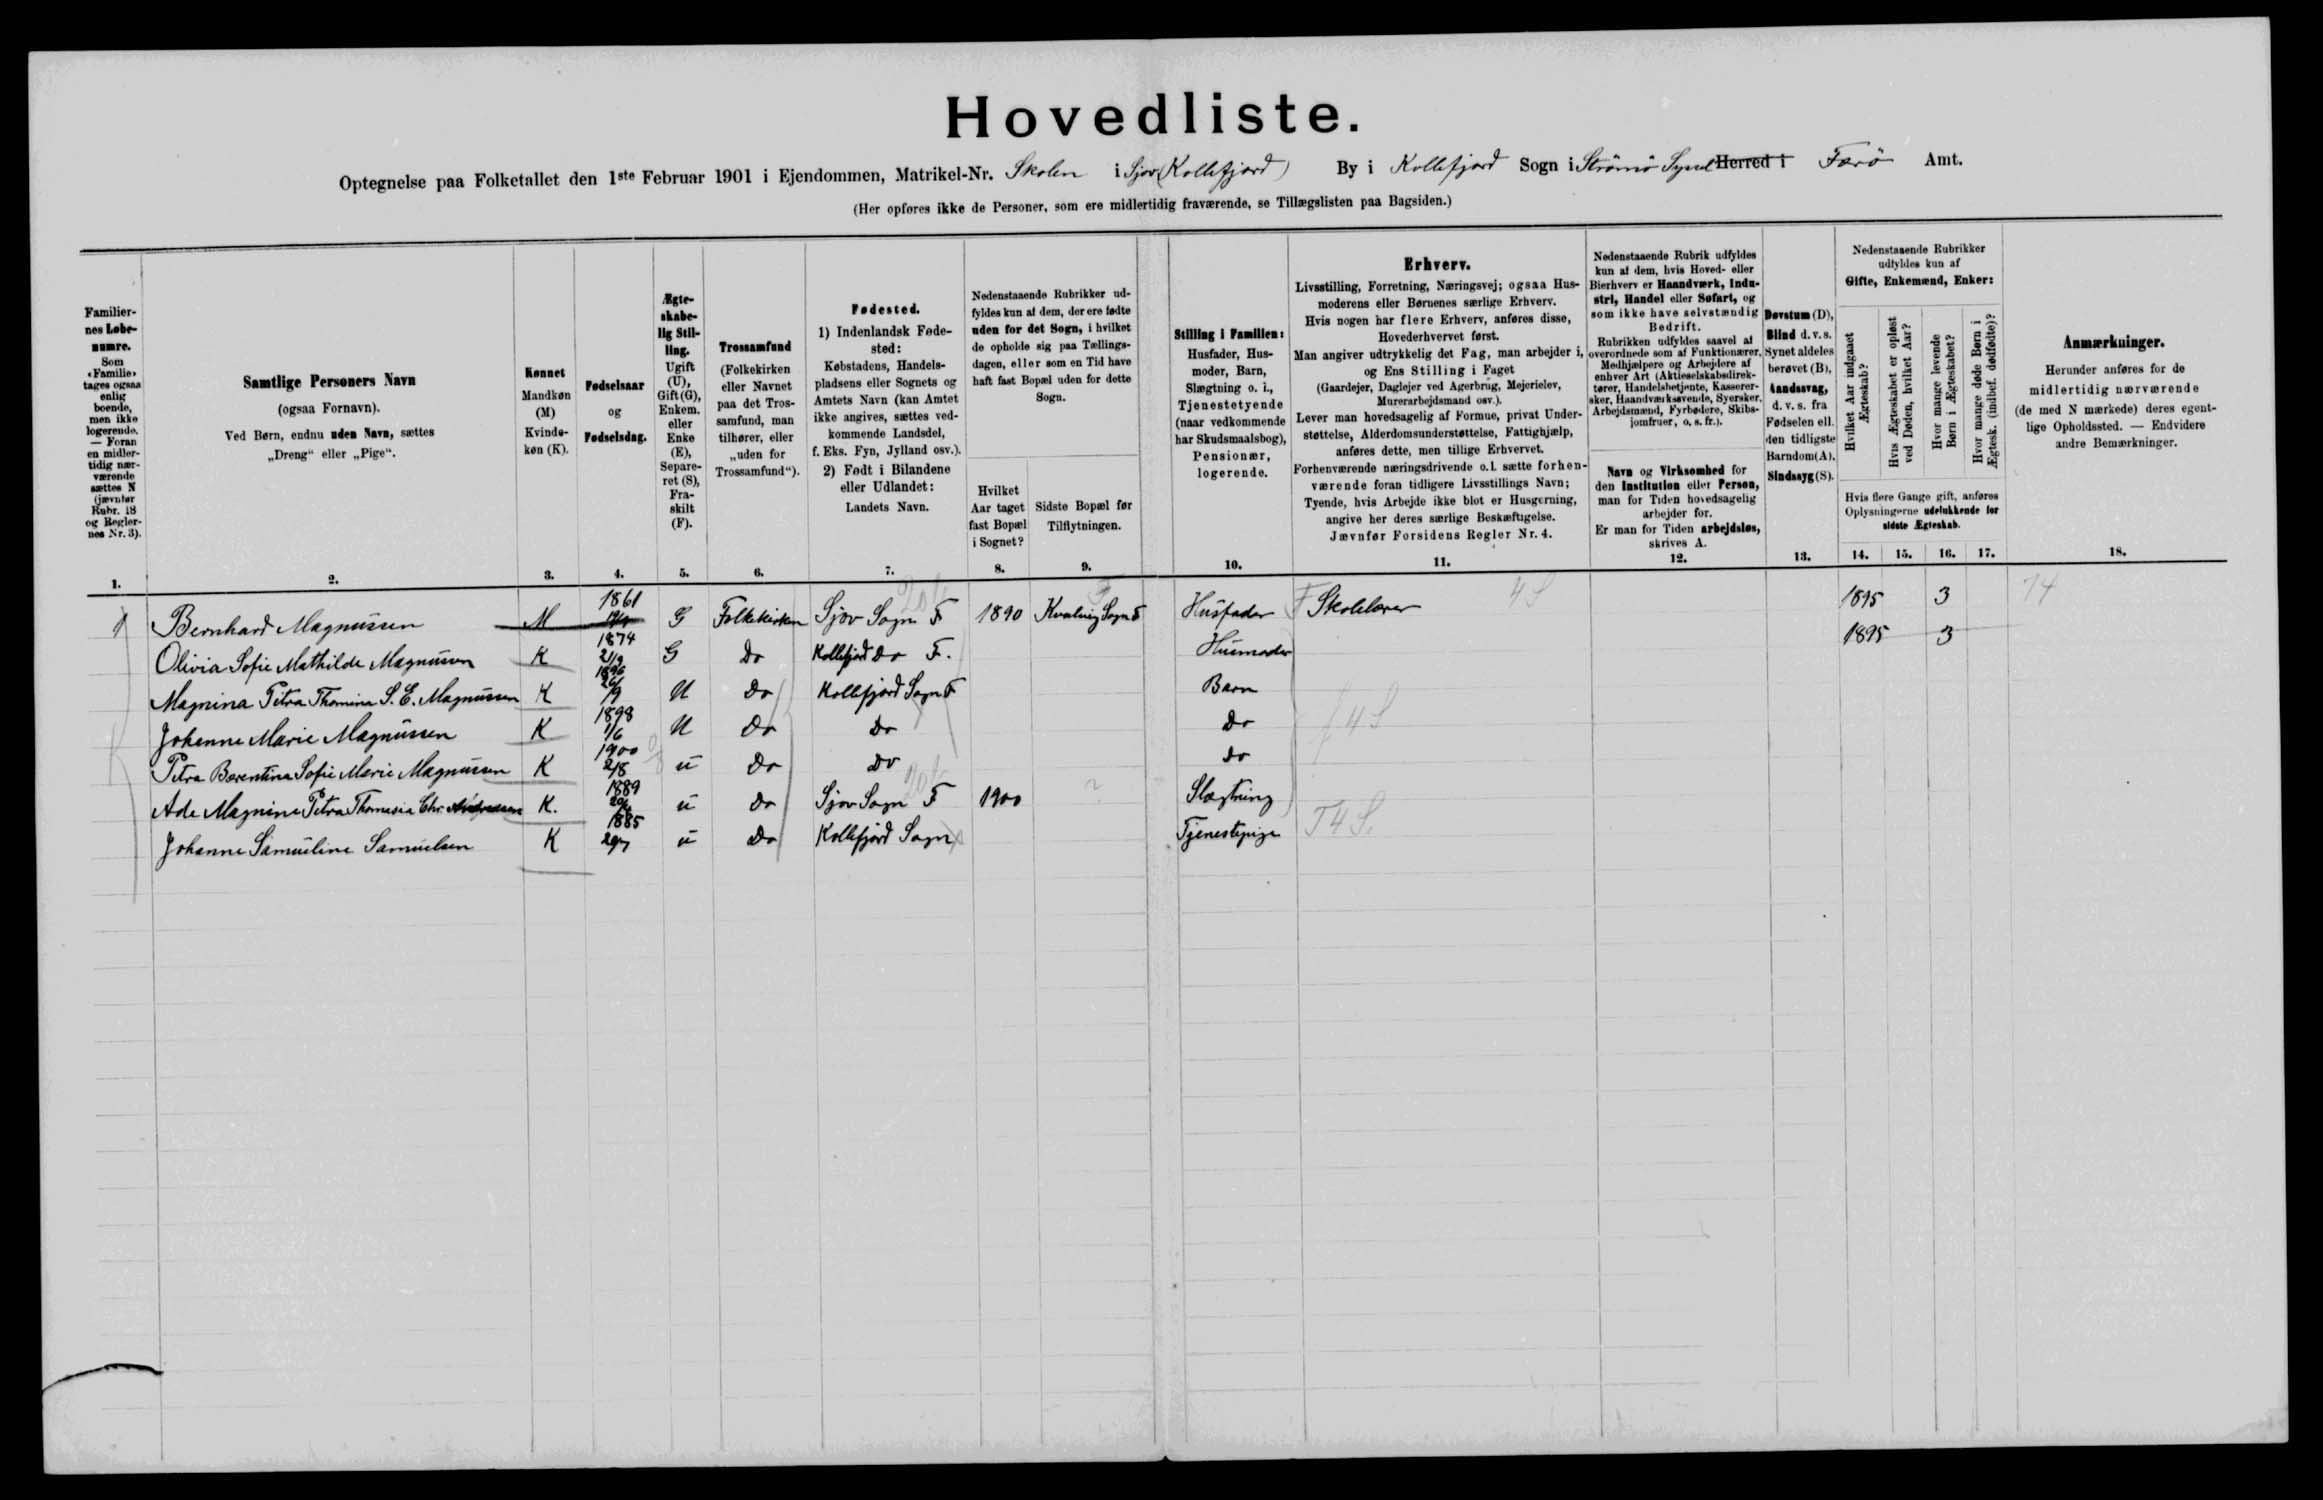 Hovedliste.
Optegnelse paa Folketallet den 1ste Februar 1901 i Ejendommen, Matrikel-Nr. Skolen i Sjov (Kollefjord) By i Kollefjord Sogn i Strömö Syssel Herred i Færö Amt.
(Her opføres ikke de Personer, som ere midlertidig fraværende, se Tillægslisten paa Bagsiden.)
Familier-
nes Løbe-
numre.
Som
«Familie»
tages ogsaa
enlig
boende,
men ikke
logerende.
— Foran
en midler-
tidig nær-
værende
sættes N
(jævnfør
Rubr. 18
og Regler-
nes Nr. 3).
1.
Samtlige Personers Navn
(ogsaa Fornavn).
Ved Børn, endnu uden Navn, sættes
„Dreng“ eller „Pige“.
2.
Kønnet
Mandkøn
(M)
Kvinde-
køn (K).
3.
Fødselsaar
og
Fødselsdag.
4.
Ægte-
skabe-
lig Stil-
ling.
Ugift
(U),
Gift (G),
Enkem.
eller
Enke
(E),
Separe-
ret (S),
Fra-
skilt
(F).
5.
Trossamfund
(Folkekirken
eller Navnet
paa det Tros-
samfund, man
tilhører, eller
„uden for
Trossamfund“).
6.
Fødested.
1) Indenlandsk Føde-
sted:
Købstadens, Handels-
pladsens eller Sognets og
Amtets Navn (kan Amtet
ikke angives, sættes ved-
kommende Landsdel,
f. Eks. Fyn, Jylland osv.).
2) Født i Bilandene
eller Udlandet:
Landets Navn.
7.
Nedenstaaende Rubrikker ud-
fyldes kun af dem, der ere fødte
uden for det Sogn, i hvilket
de opholde sig paa Tællings-
dagen, eller som en Tid have
haft fast Bopæl uden for dette
Sogn.
Hvilket
Aar taget
fast Bopæl
i Sognet?
8.
Sidste Bopæl før
Tilflytningen.
9.
Stilling i Familien:
Husfader, Hus-
moder, Barn,
Slægtning o. l.,
Tjenestetyende
(naar vedkommende
har Skudsmaalsbog),
Pensionær,
logerende.
10.
Erhverv.
Livsstilling, Forretning, Næringsvej; ogsaa Hus-
moderens eller Børnenes særlige Erhverv.
Hvis nogen har flere Erhverv, anføres disse,
Hovederhvervet først.
Man angiver udtrykkelig det Fag, man arbejder i,
og Ens Stilling i Faget
(Gaardejer, Daglejer ved Agerbrug, Mejerielev,
Murerarbejdsmand osv.).
Lever man hovedsagelig af Formue, privat Under-
støttelse, Alderdomsunderstøttelse, Fattighjælp,
anføres dette, men tillige Erhvervet.
Forhenværende næringsdrivende o. l. sætte forhen-
værende foran tidligere Livsstillings Navn;
Tyende, hvis Arbejde ikke blot er Husgerning,
angive her deres særlige Beskæftigelse.
Jævnfør Forsidens Regler Nr. 4.
11.
Nedenstaaende Rubrik udfyldes
kun af dem, hvis Hoved- eller
Bierhverv er Haandværk, Indu-
stri, Handel eller Søfart, og
som ikke have selvstændig
Bedrift.
Rubrikken udfyldes saavel af
overordnede som af Funktionærer,
Medhjælpere og Arbejdere af
enhver Art (Aktieselskabsdirek-
tører, Handelsbetjente, Kasserer-
sker, Haandværkssvende, Syersker,
Arbejdsmænd, Fyrbødere, Skibs-
jomfruer, o. s. fr.).
Navn og Virksomhed for
den Institution eller Person,
man for Tiden hovedsagelig
arbejder for.
Er man for Tiden arbejdsløs,
skrives A.
12.
Døvstum (D),
Blind d. v. s.
Synet aldeles
berøvet (B),
Aandssvag,
d. v. s. fra
Fødselen ell.
den tidligste
Barndom (A).
Sindssyg (S).
13.
Nedenstaaende Rubrikker
udfyldes kun af
Gifte, Enkemænd, Enker:
Hvilket Aar indgaaet
Ægteskab?
Hvis Ægteskabet er opløst
ved Døden, hvilket Aar?
Hvor mange levende
Børn i Ægteskabet?
Hvor mange døde Børn i
Ægtesk. (indbef. dødfødte)?
Hvis flere Gange gift, anføres
Oplysningerne udelukkende for
sidste Ægteskab.
14. 15. 16. 17.
Anmærkninger.
Herunder anføres for de
midlertidig nærværende
(de med N mærkede) deres egent-
lige Opholdssted. — Endvidere
andre Bemærkninger.
18.
1 Bernhard Magnussen M 1861 G Folkekirken Sjov Sogn F 1890 Kvalvig Sogn F Husfader Skolelærer 4 S 1895 3 74
Olivia Sofie Mathilde Magnussen K 1874 21/9 G Do Kollefjord Do F. Husmoder 1895 3
Magnina Petra Thomina S. E. Magnussen K 1896 26/9 U Do Kollefjord Sogn F Barn
Johanne Marie Magnussen K 1898 1/6 U Do Do Do 4 S
Petra Berentina Sofie Marie Magnussen K 1900 2/8 u Do Do Do
Ade Magnine Petra Thomasia Chr. K. 1889 u Do Sjov Sogn F 1900 ? Slægtning
Johanne Samueline Samuelsen K 1885 u Do Kollefjord Sogn Tjenestepige T 4 S.